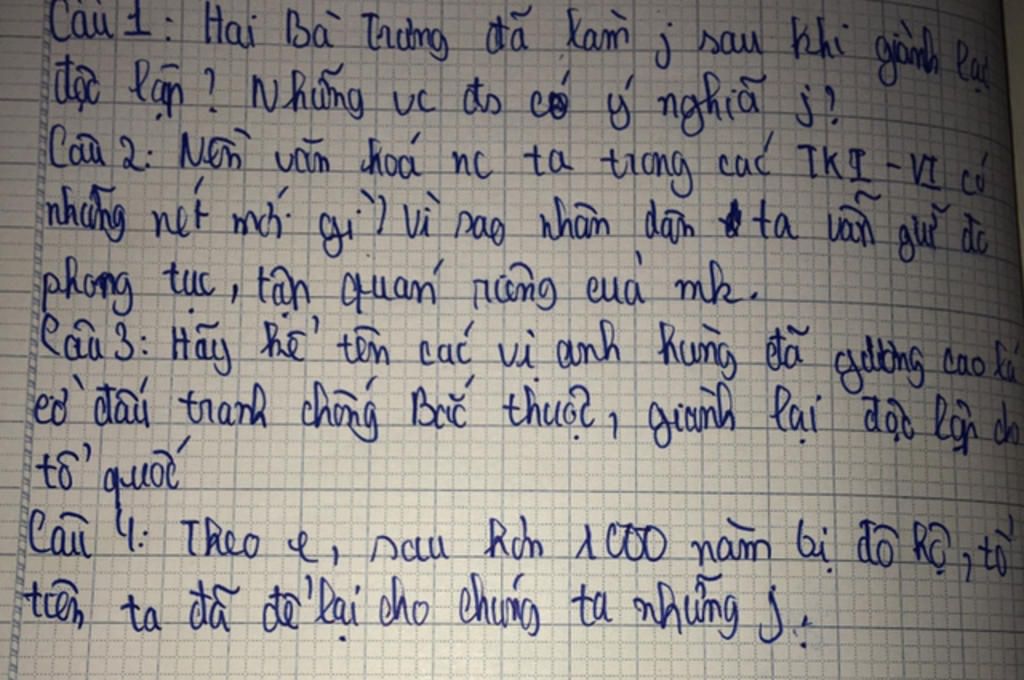 Câu 1: Hai Bà Trưng đã làm j sau khi giành lại
độc lập? Những vc đó có ý nghĩa j?
Câu 2: Nền văn hoá nc ta trong các TK I - VI có
những nét mới gì? Vì sao nhân dân ta vẫn giữ đc
phong tục, tập quán riêng của mk.
Câu 3: Hãy kể tên các vị anh hùng đã giương cao lá
cờ đấu tranh chống Bắc thuộc, giành lại độc lập cho
tổ quốc
Câu 4: Theo e, sau hơn 1000 năm bị đô hộ, tổ
tiên ta đã để lại cho chúng ta những j.